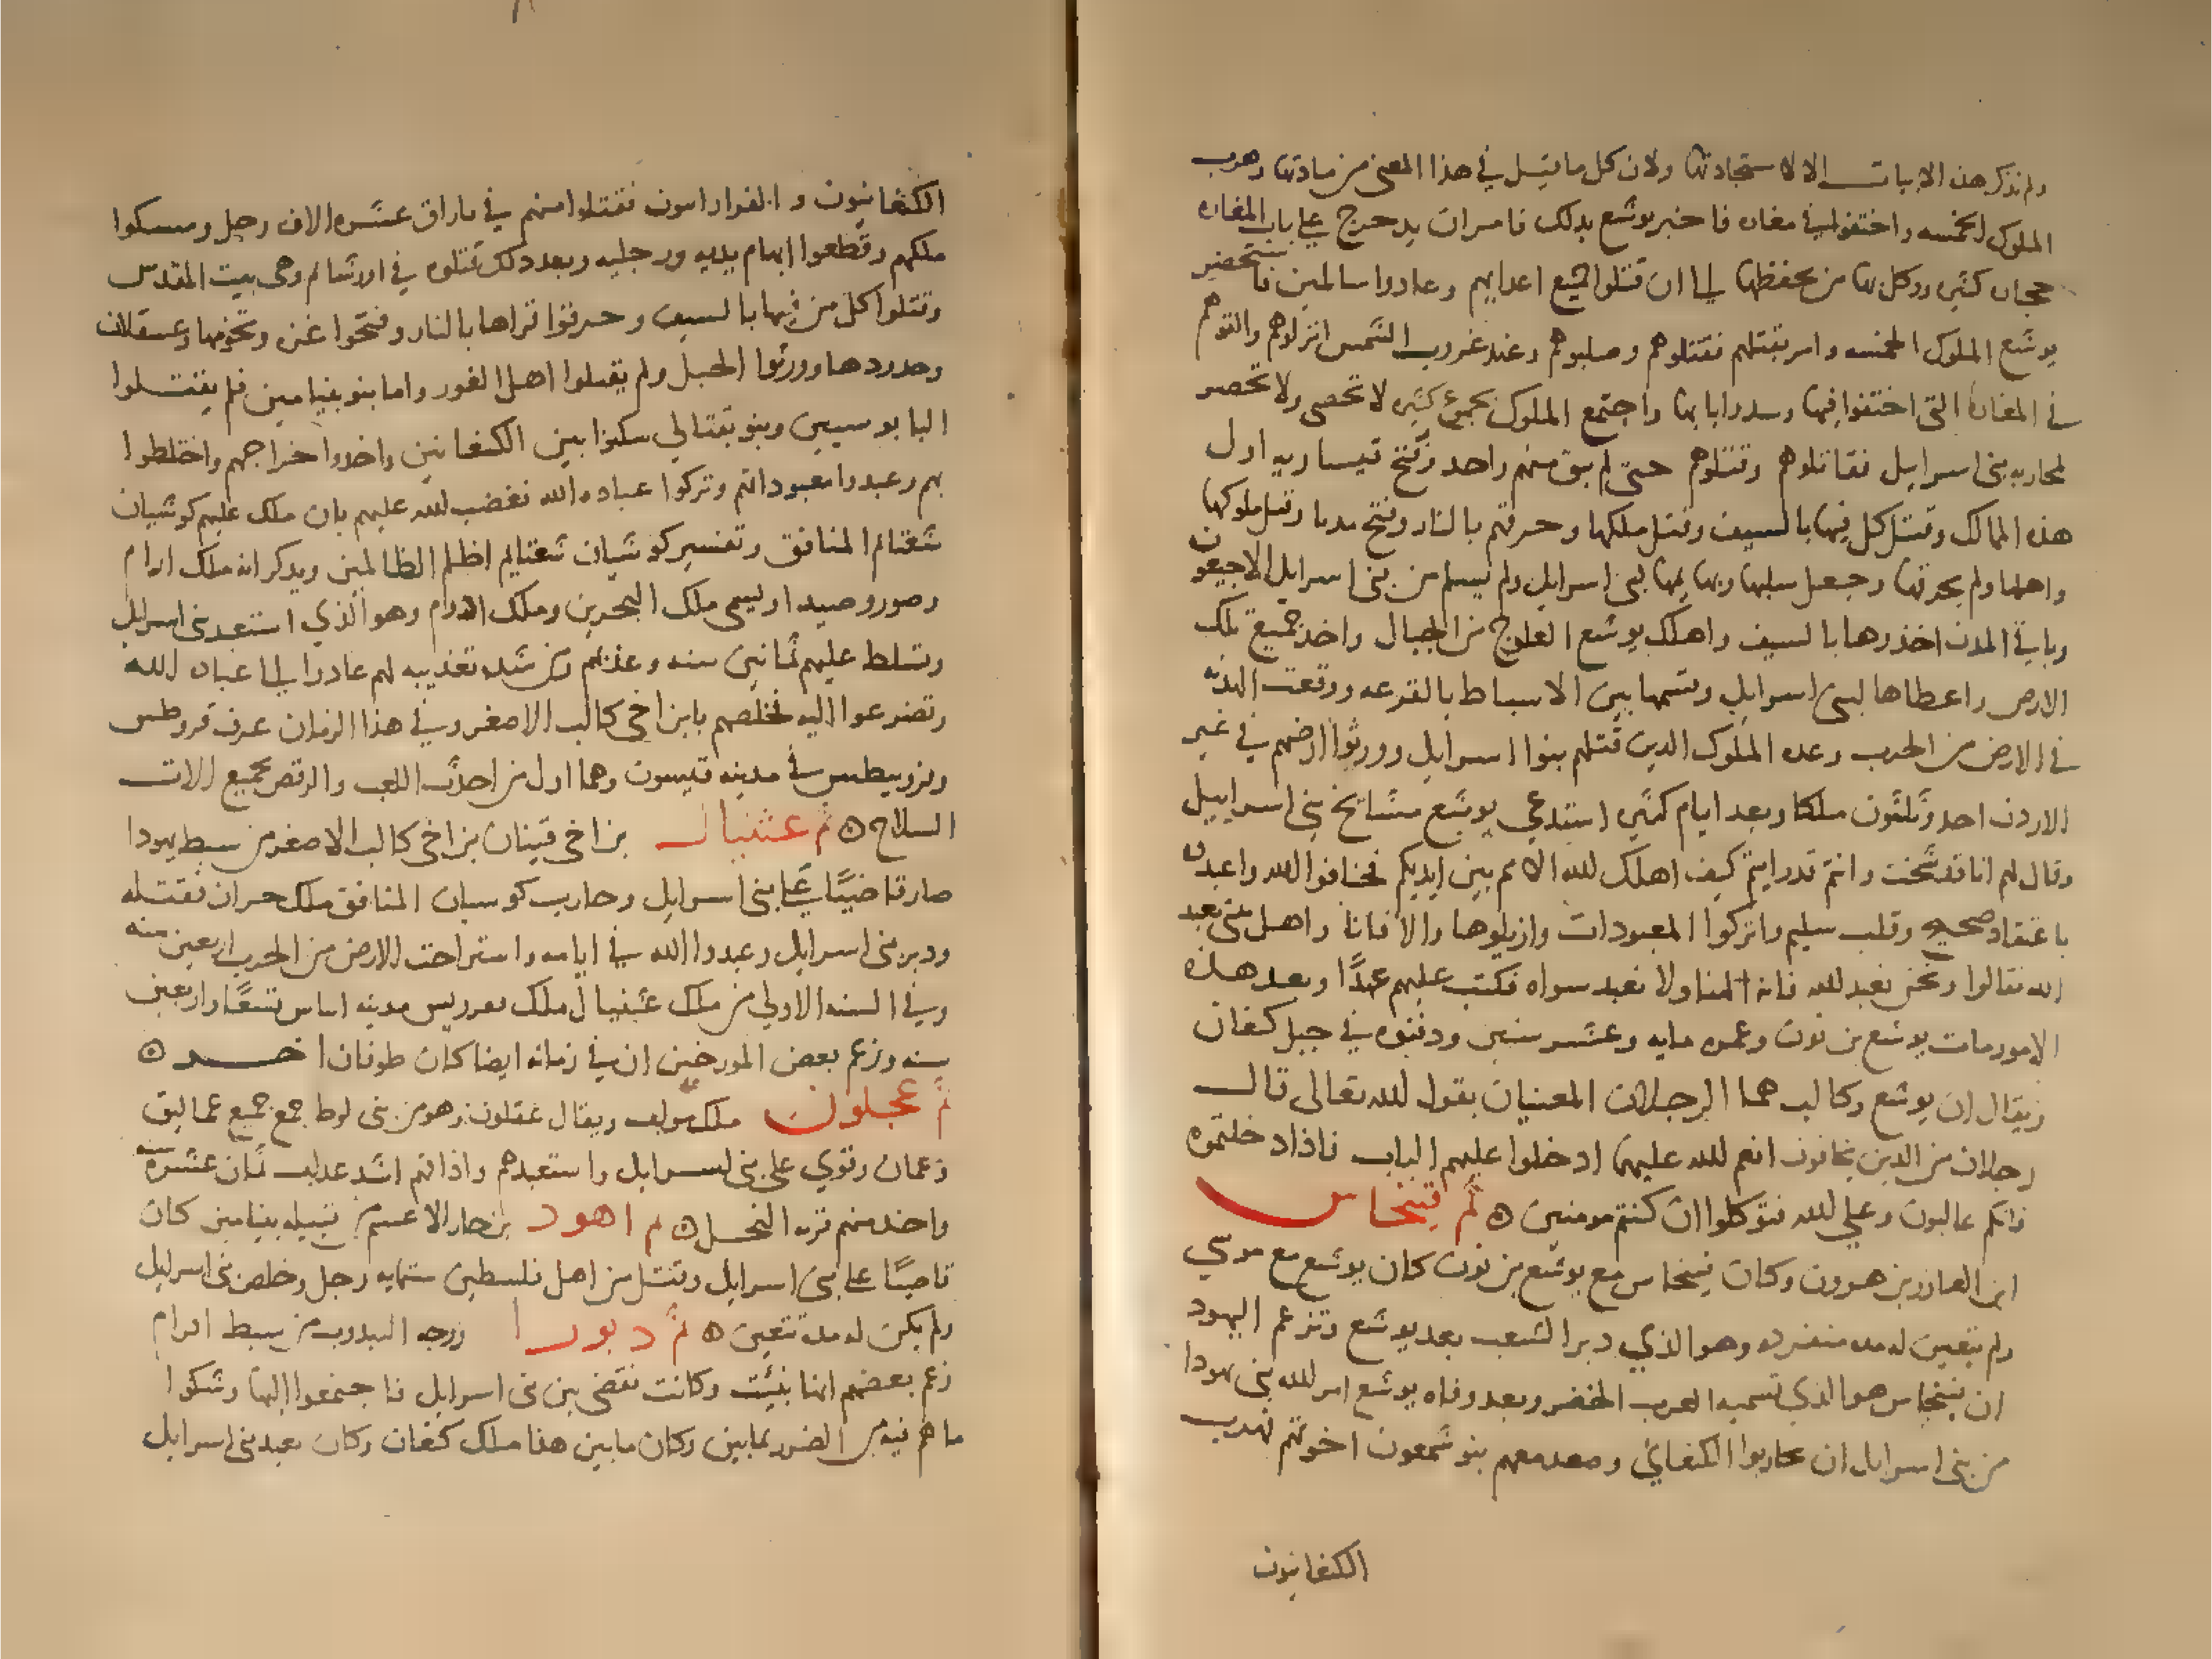 ولم نذكر هذه الابيات الا لاستجادتها ولان كل ما قيل في هذا المعنى من مادتها وهرب
الملوك الخمسه واختفوا في مغاره فاخبر يوشع بذلك فامر ان يدحرج علي باب المغاره
حجاره كثيره ووكل بها من يحفظها الي ان قتلوا جميع اعدايهم وعادوا سالمين فاستحضر
يوشع الملوك الخمسه وامر بقتلهم فقتلوهم وصلبوهم وعند غروب الشمس انزلوهم والقوهم
في المغارة التي اختفوا فيها وسدوا بابها واجتمع الملوك بجموع كثيره لا تحصى ولا تحصر
لمحاربه بني اسرايل فقاتلوهم وقتلوهم حتى لم يبق منهم واحد وفتح قيساريه اول
هذه الممالك وقتل كل فيها بالسيف وقتل ملكها وحرقهم بالنار وفتح مدنا وقتل ملوكها
واهلها ولم يحرقها وجعل سلبها وبهايمها لبني اسرايل ولم يسلم من بني اسرايل الا جبعون
وباقي المدن اخذوها بالسيف واهلك يوشع العلوج من الجبال واخذ جميع تلك
الارض واعطاها لبني اسرايل وقسمها بين الاسباط بالقرعه ووقعت الهدنه
في الارض من الحرب وعده الملوك الذين قتلهم بنوا اسرايل وورثوا ارضهم في غير
الاردن احد وثلثون ملكا وبعد ايام كثيره استدعي يوشع مشايخ بني اسراييل
وقال لهم انا قد شخت وانتم قد رايتم كيف اهلك الله الامم بين ايديكم فخافوا الله واعبدوه
باعتقاد صحيح وقلب سليم واتركوا المعبودات وازيلوها والا فانا واهل بيتي نعبد
الله فقالوا ونحن نعبد الله فانه الهنا ولا نعبد سواه فكتب عليهم عهدًا وبعد هذه
الامور مات يوشع بن نون وعمره مايه وعشر سنين ودفنوه في جبل كنعان
ويقال ان يوشع وكالب هما الرجلان المعنيان بقول الله تعالى قال
رجلان من الذين يخافون انعم الله عليهما ادخلوا عليهم الباب فاذا دخلتموه
فانكم غالبون وعلي الله فتوكلوا ان كنتم مومنين ه ثم فينحاس
ابن العازر بن هرون وكان فينحاس مع يوشع بن نون كان يوشع مع موسي
ولم تتعين له مده منفرده وهو الذي دبر الشعب بعد يوشع وتزعم اليهود
ان فينحاس هو الذي تسميه العرب الخضر وبعد وفاه يوشع امر الله بني يهودا
من بني اسرايل ان يحاربوا الكنعاني وصعد معهم بنو شمعون اخوتهم فهرب
الكنعانيون
الكنعانيون و الفواراسون فقتلوا منهم في باراق عشره الاف رجل ومسكوا
ملكهم وقطعوا ابهام يديه ورجليه وبعد ذلك قتلوه في اورشالم وهي بيت المقدس
وقتلوا كل من فيها بالسيف وحرقوا قراها بالنار وفتحوا غزه وتخومها وعسقلان
وحدودها وورثوا الجبل ولم يقتلوا اهل الغور واما بنو بنيامين فلم يقتلوا
اليابوسيين وبنو نفتالي سكنوا بين الكنعانيين واخذوا خراجهم واختلطوا
بهم وعبدوا معبوداتهم وتركوا عباده الله فغضب الله عليهم بان ملك عليهم كوشيان
شعتايم المنافق وتفسير كوشيان شعتايم اظلم الظالمين ويذكر انه ملك ارام
وصور وصيدا وليسمى ملك البحرين وملك الاروام وهو الذي استعبد بني اسرايل
وتسلط عليهم ثمانين سنه وعذبهم ومن شده تعذيبه لهم عادوا الي عباده الله
وتضرعوا اليه فخلصهم بابن اخي كالب الاصغر وفي هذا الزمان عرف قروطس
وبزوبيطس في مدينه قيسون وهما اول من احدث اللعب والرقص بجميع الات
السلاح ه ثم عثنيال بن اخي قينان بن اخي كالب الاصغر من سبط يهودا
صار قاضيًا علي بني اسرايل وحارب كوسيان المنافق ملك حران فقتله
ودبر بني اسرايل وعبدوا الله في ايامه واستراحت الارض من الحرب اربعين سنه
وفي السنه الاولي من ملك عثنيال ملك مدينه تسعًا واربعين
سنه وزعم بعض المورخين ان في زمانه ايضا كان طوفان اخر ه
ثم عجلون ملك مواب ويقال عقلون وهو من بني لوط جمع جميع عماليق
وعمان وقوي علي بني اسرايل واستعبدهم واذاقهم اشد عذاب ثمان عشرة سنه
واخذ منهم قريه النخل ه ثم اهود بن جار الاعسر من قبيله بنيامين كان
قاضيًا علي بني اسرايل وقتل من اهل فلسطين ستمايه رجل وخلص بني اسرايل
ولم يكن له مده تتعين ه ثم دبورا زوجه البيدوب من سبط افرام
زعم بعضهم انها نبيئت وكانت تقضي بين بني اسرايل فاجتمعوا اليها وشكوا
ما هم فيه من الضرر يمابين وكان مابين هذا ملك كنعان وكان يعبد بني اسرايل